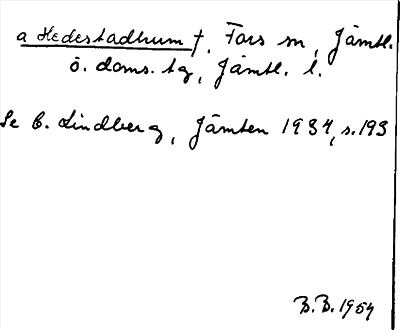 a Hedestadhum †, Fors sn, Jämtl.
ö. doms. tg, Jämtl. l.
Se C. Lindberg, Jämten 1934, s. 193
B.B. 1954